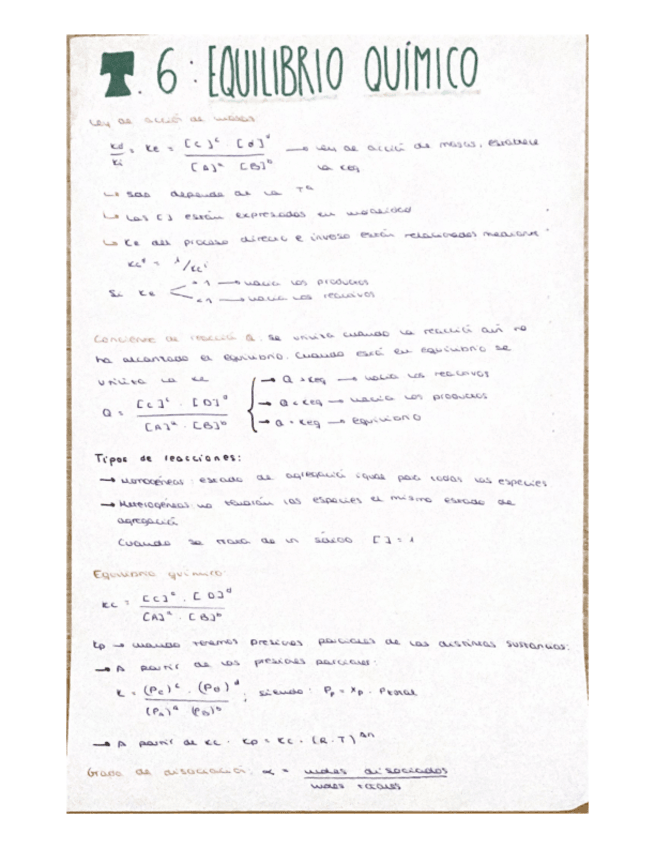 T. 6: EQUILIBRIO QUÍMICO
Ley de acció de masas
Kd/Ki = Kc = [C]^c · [D]^d / [A]^a · [B]^b → Ley de acció de masas, establece
la Keq
↳ Solo depende de la Tª
↳ Las [ ] están expresadas en molaridad
↳ Kc del proceso directe e inverso están relacionados mediante
Kc^d = 1/Kc^i
Si Kc > 1 → hacia los productos
< 1 → hacia los reactivos
Cociente de reacció Q: se utiliza cuando la reacció aún no
ha alcanzado el equilibrio. Cuando está en equilibrio se
utiliza la Kc
Q = [C]^c · [D]^d / [A]^a · [B]^b
→ Q > Keq → hacia los reactivos
→ Q < Keq → hacia los productos
→ Q = Keq → equilibrio
Tipos de reacciones:
→ Homogéneas: estado de agregació igual para todas las especies
→ Heterogéneas: no tendrán las especies el mismo estado de
agregació
Cuando se trata de un sólido [ ] = 1
Equilibrio químico:
Kc = [C]^c · [D]^d / [A]^a · [B]^b
Kp → cuando tenemos presiones parciales de las distintas sustancias:
→ A partir de las presiones parciales:
K = (Pc)^c · (PD)^d / (PA)^a · (PB)^b ; siendo: Pp = xp · Ptotal
→ A partir de Kc · Kp = Kc · (R·T)^Δn
Grado de disociació: α = moles disociados / moles totales